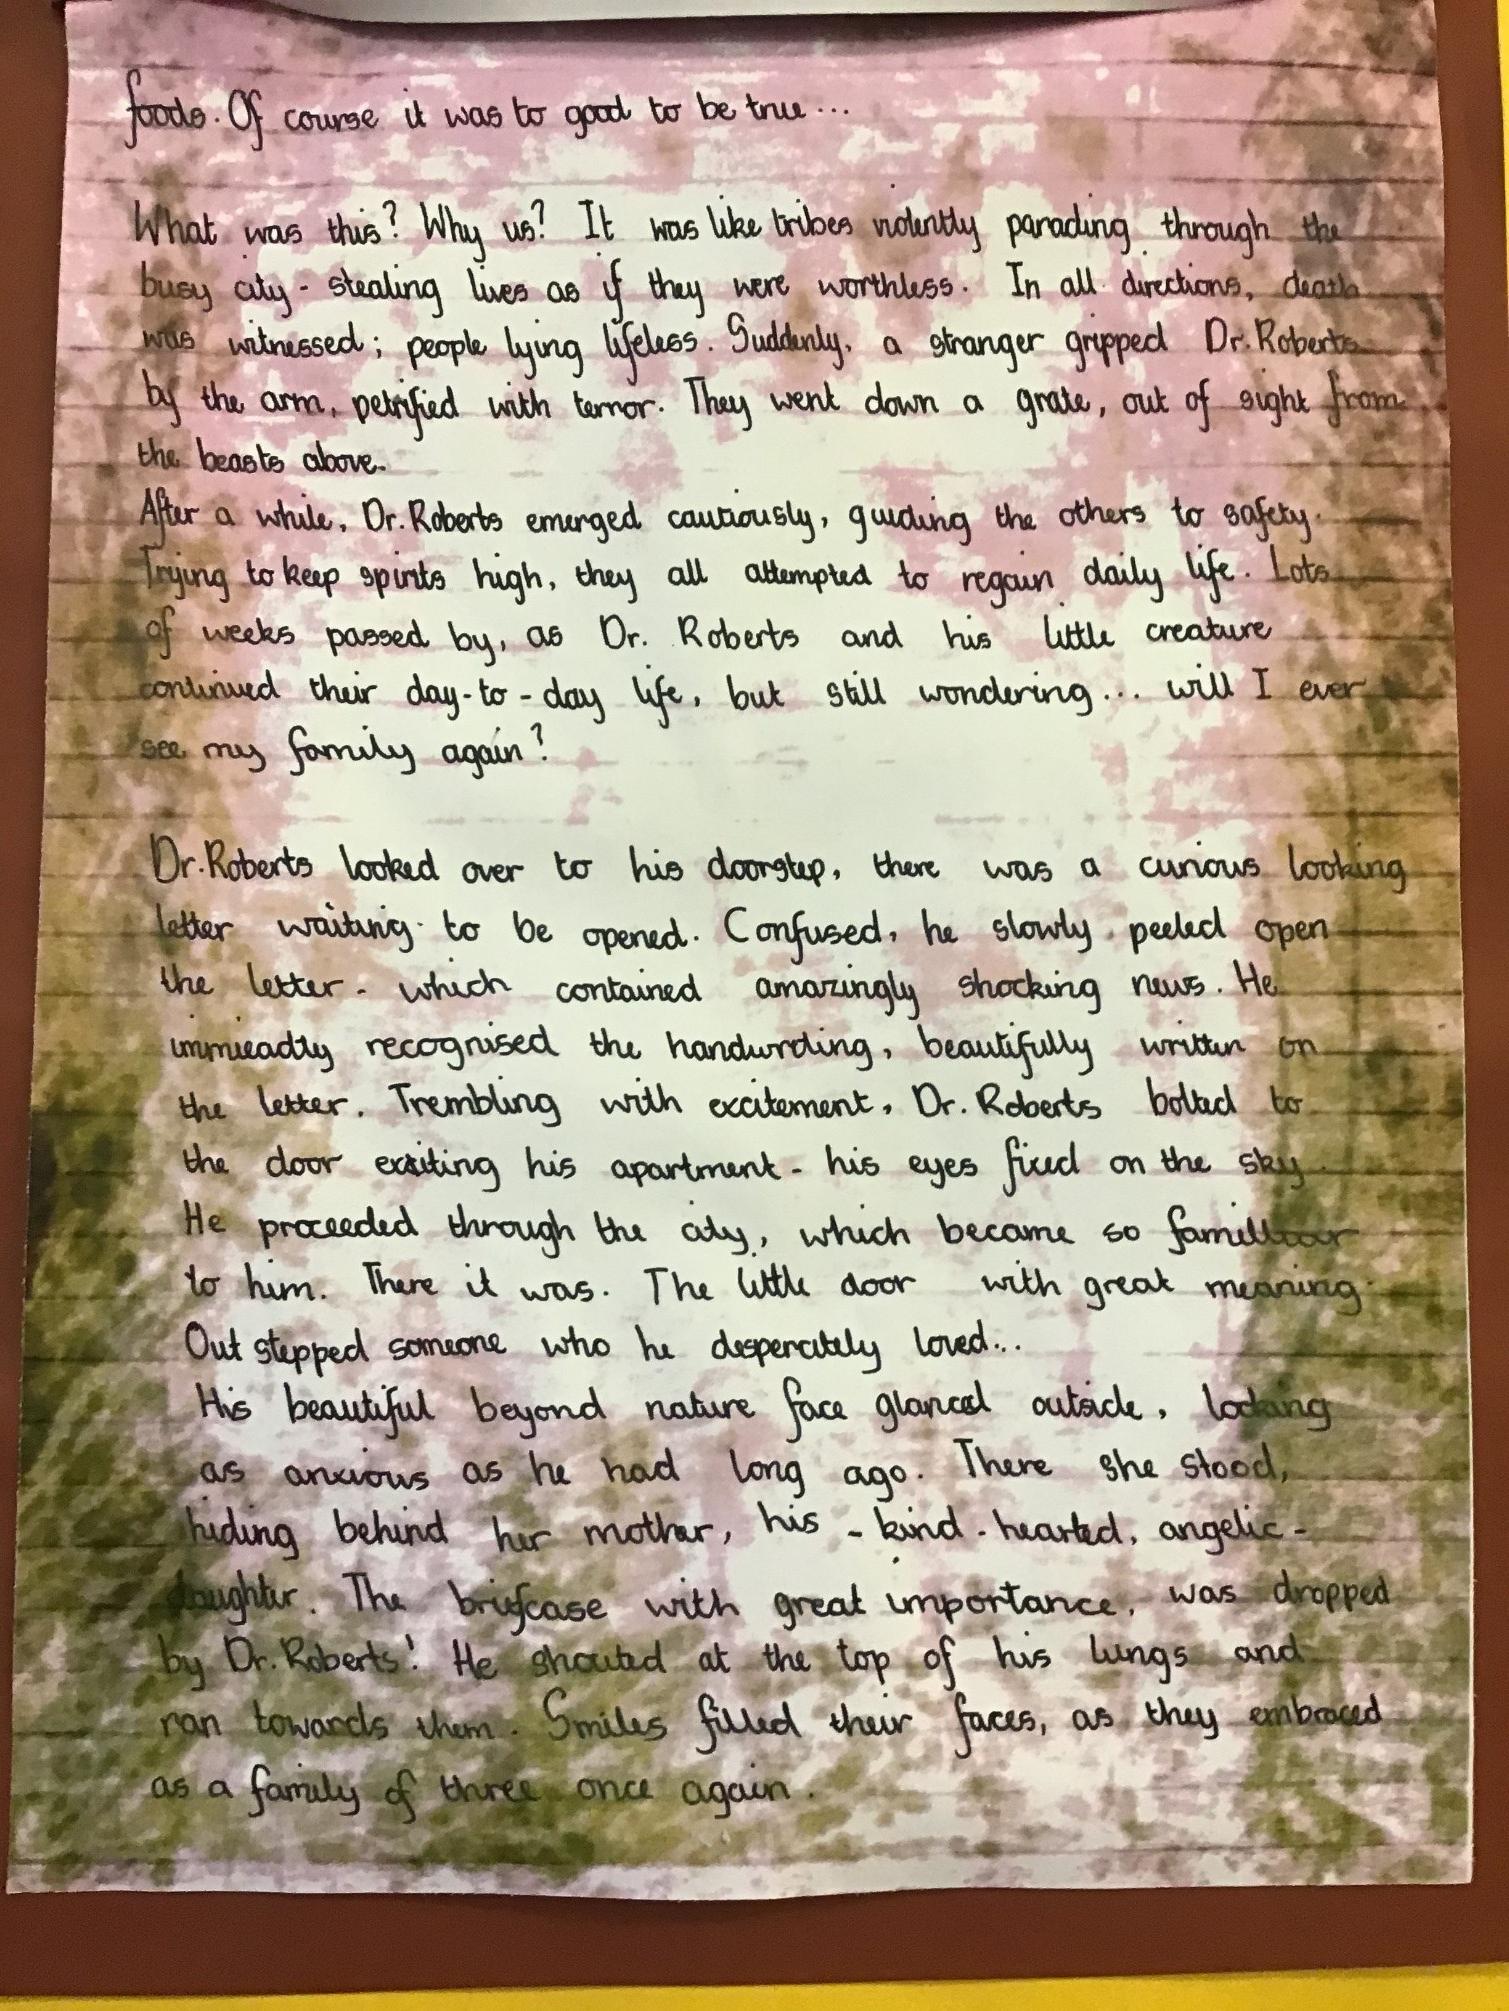 foods. Of course it was to good to be true...
What was this? Why us? It was like tribes violently parading through the
busy city - stealing lives as if they were worthless. In all directions, death
was witnessed; people lying lifeless. Suddenly, a stranger gripped Dr. Roberts
by the arm, petrified with terror. They went down a grate, out of sight from
the beasts above.
After a while, Dr. Roberts emerged cautiously, guiding the others to safety.
Trying to keep spirits high, they all attempted to regain daily life. Lots
of weeks passed by, as Dr. Roberts and his little creature
continued their day-to-day life, but still wondering... will I ever
see my family again?
Dr. Roberts looked over to his doorstep, there was a curious looking
letter waiting to be opened. Confused, he slowly peeled open
the letter - which contained amazingly shocking news. He
immieadtly recognised the handwrding, beautifully written on
the letter. Trembling with excitement, Dr. Roberts bolted to
the door exiting his apartment - his eyes fixed on the sky.
He proceeded through the city, which became so familiar
to him. There it was. The little door with great meaning.
Out stepped someone who he desperately loved...
His beautiful beyond nature face glanced outside, looking
as anxious as he had long ago. There she stood,
hiding behind her mother, his - kind-hearted, angelic -
daughter. The briefcase with great importance, was dropped
by Dr. Roberts! He shouted at the top of his lungs and
ran towards them. Smiles filled their faces, as they embraced
as a family of three once again.